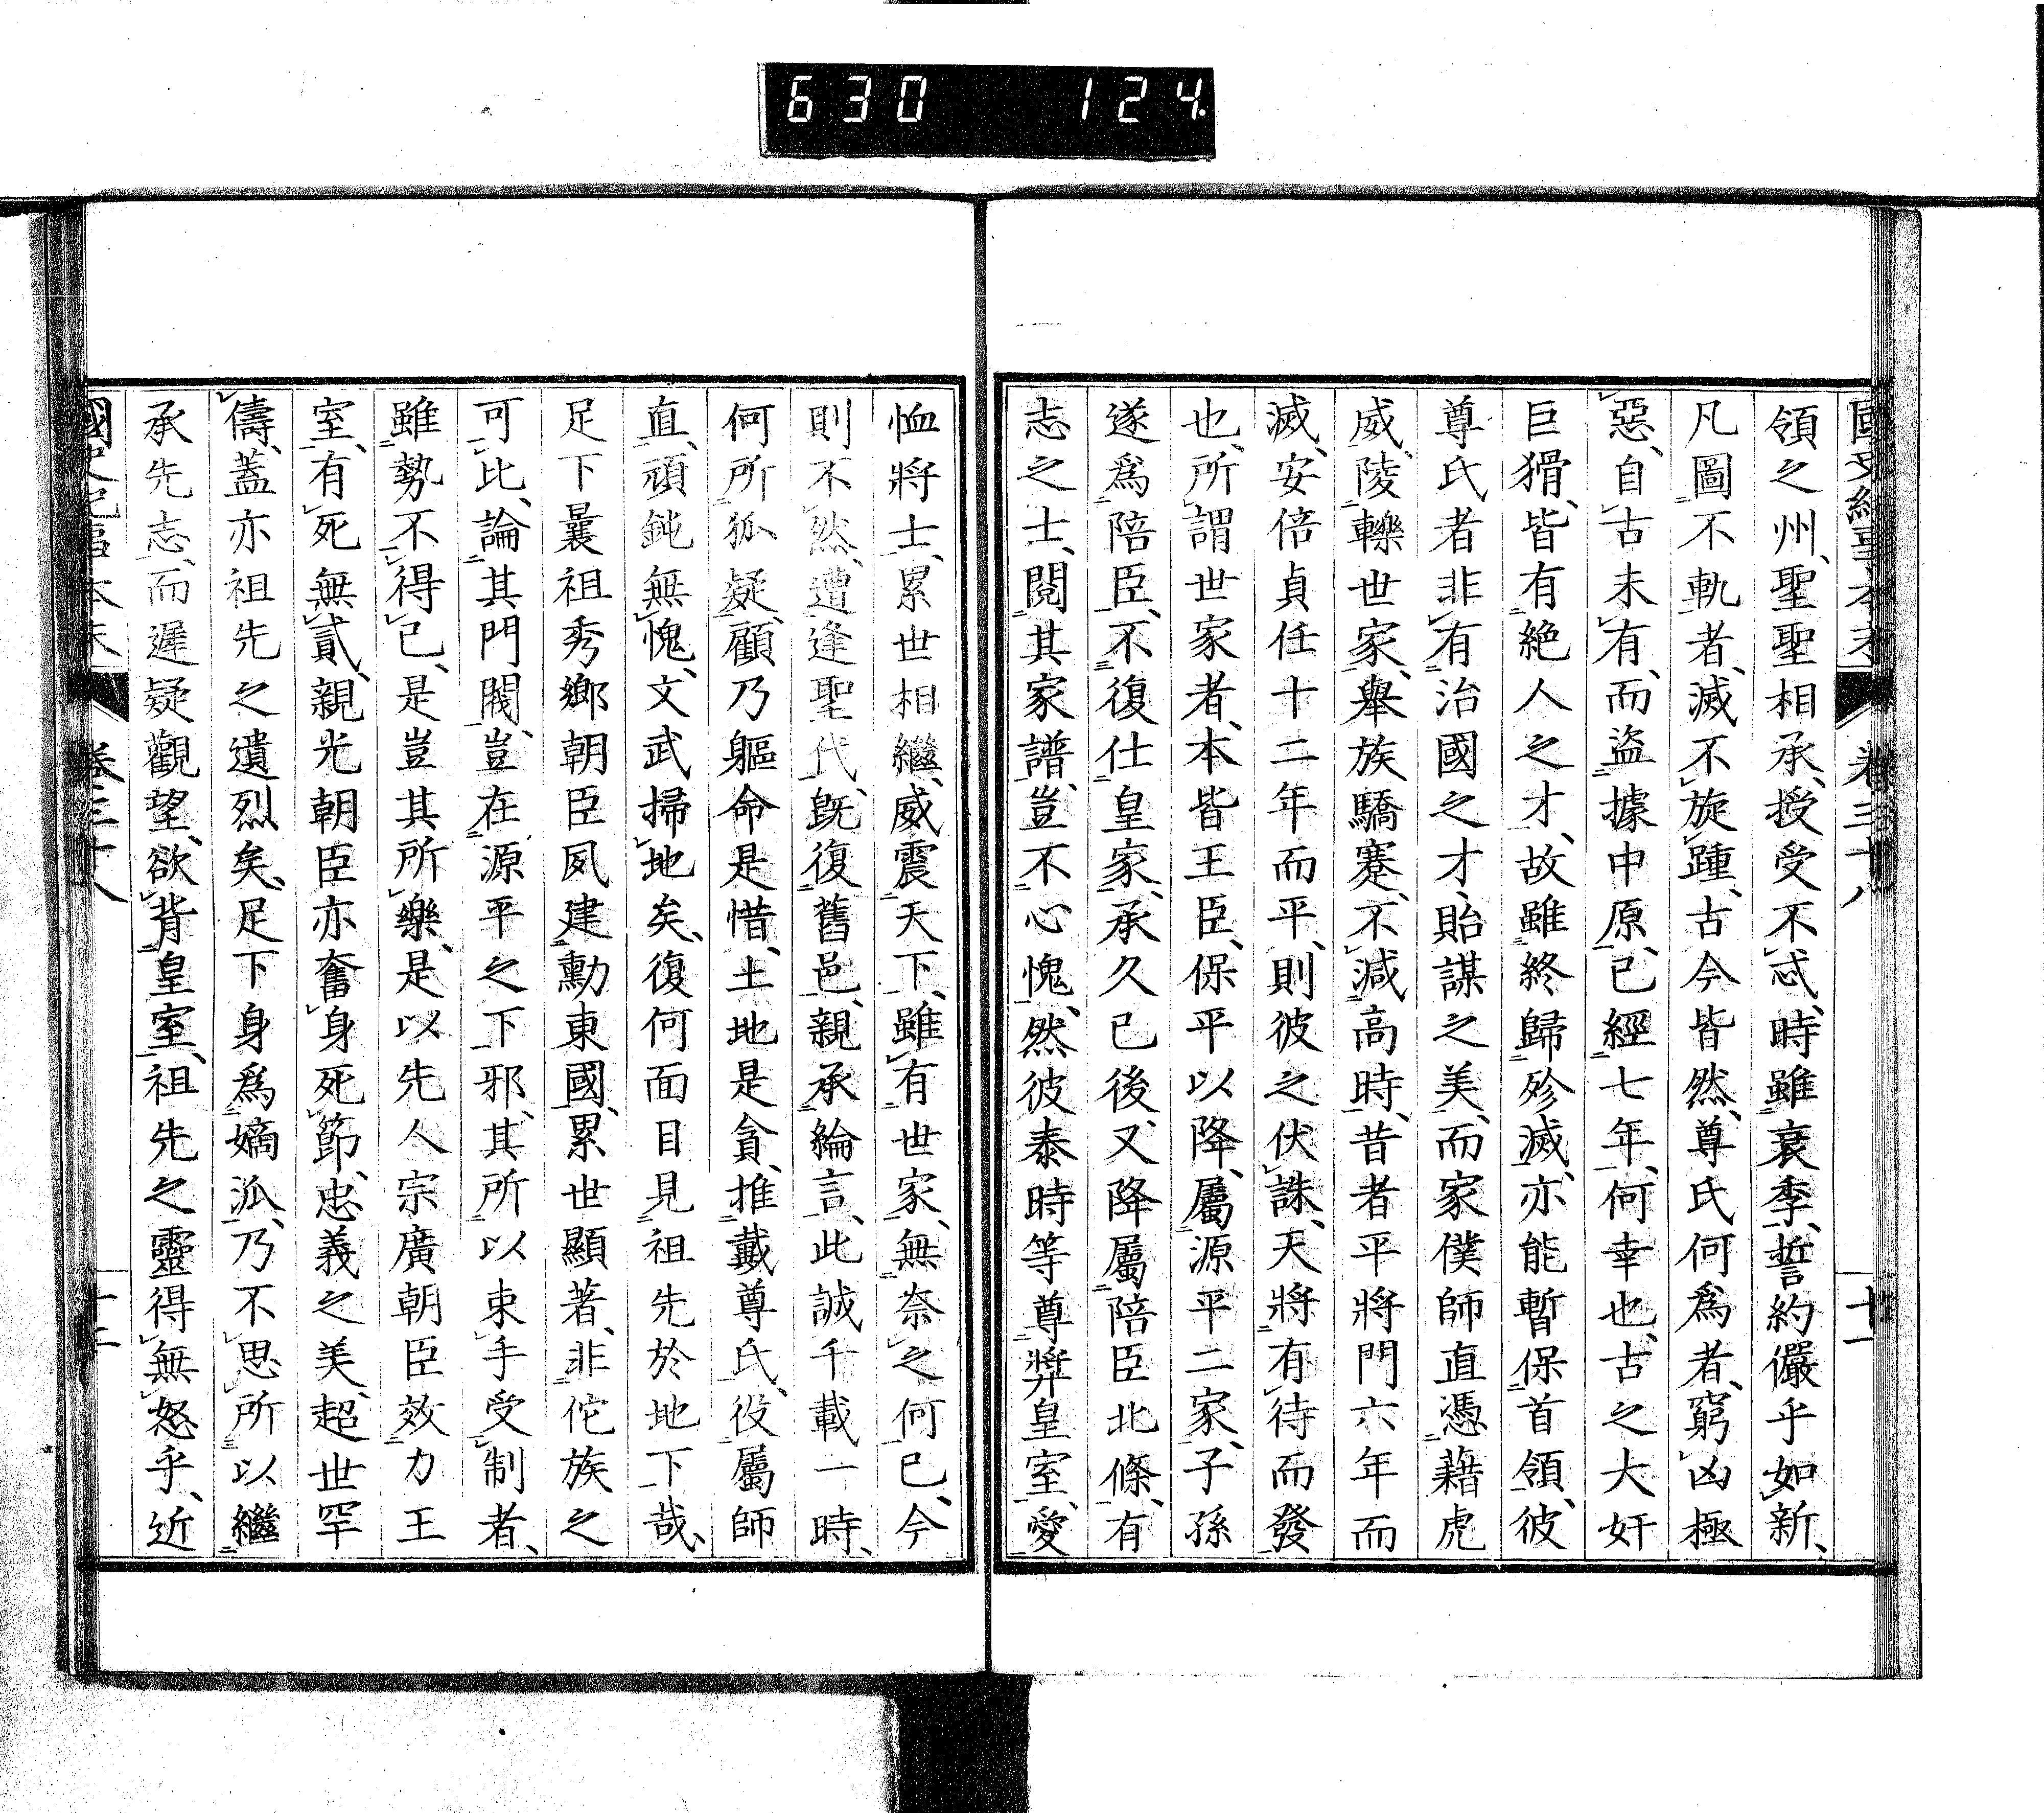 630 124
國史紀事本末 卷三十八 十一
領之州、聖聖相承、授受不忒、時雖衰季、誓約儼乎如新、
凡圖不軌者、滅不旋踵、古今皆然、尊氏何爲者、窮凶極
惡、自古未有、而盜據中原、已經七年、何幸也、古之大奸
巨猾、皆有絶人之才、故雖終歸殄滅、亦能暫保首領、彼
尊氏者非有治國之才、貽謀之美、而家僕師直憑藉虎
威、陵轢世家、舉族驕蹇、不減高時、昔者平將門六年而
滅、安倍貞任十二年而平、則彼之伏誅、天將有待而發
也、所謂世家者、本皆王臣、保平以降、屬源平二家、子孫
遂爲陪臣、不復仕皇家、承久已後、又降屬陪臣北條、有
志之士、閱其家譜、豈不心愧、然彼泰時等尊弉皇室、愛
恤將士、累世相繼、威震天下、雖有世家、無奈之何已、今
則不然、遭逢聖代、既復舊邑、親承綸言、此誠千載一時、
何所狐疑、顧乃軀命是惜、土地是貪、推戴尊氏、役屬師
直、頑鈍無愧、文武掃地矣、復何面目見祖先於地下哉、
足下曩祖秀鄉朝臣夙建勳東國、累世顯著、非佗族之
可比、論其門閥、豈在源平之下邪、其所以束手受制者、
雖勢不得已、是豈其所樂、是以先人宗廣朝臣效力王
室、有死無貳、親光朝臣亦奮身死節、忠義之美、超世罕
儔、蓋亦祖先之遺烈矣、足下身爲嫡派、乃不思所以繼
承先志、而遲疑觀望、欲背皇室、祖先之靈得無怒乎、近
國史紀事本末 卷三十八 十二